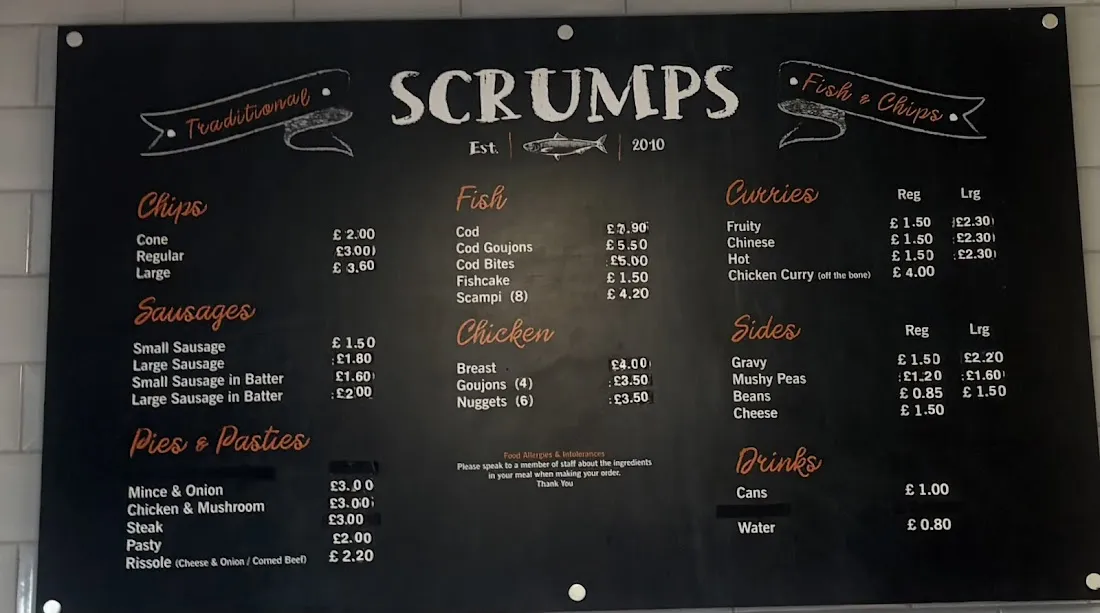 Traditional
SCRUMPS
Fish & Chips
Est. 2010
Chips
Cone £2.00
Regular £3.00
Large £3.60
Sausages
Small Sausage £1.50
Large Sausage £1.80
Small Sausage in Batter £1.60
Large Sausage in Batter £2.00
Pies & Pasties
Mince & Onion £3.00
Chicken & Mushroom £3.00
Steak £3.00
Pasty £2.00
Rissole (Cheese & Onion / Corned Beef) £2.20
Fish
Cod £7.90
Cod Goujons £5.50
Cod Bites £5.00
Fishcake £1.50
Scampi (8) £4.20
Chicken
Breast £4.00
Goujons (4) £3.50
Nuggets (6) £3.50
Food Allergies & Intolerances
Please speak to a member of staff about the ingredients
in your meal when making your order.
Thank You
Curries Reg Lrg
Fruity £1.50 £2.30
Chinese £1.50 £2.30
Hot £1.50 £2.30
Chicken Curry (off the bone) £4.00
Sides Reg Lrg
Gravy £1.50 £2.20
Mushy Peas £1.20 £1.60
Beans £0.85 £1.50
Cheese £1.50
Drinks
Cans £1.00
Water £0.80